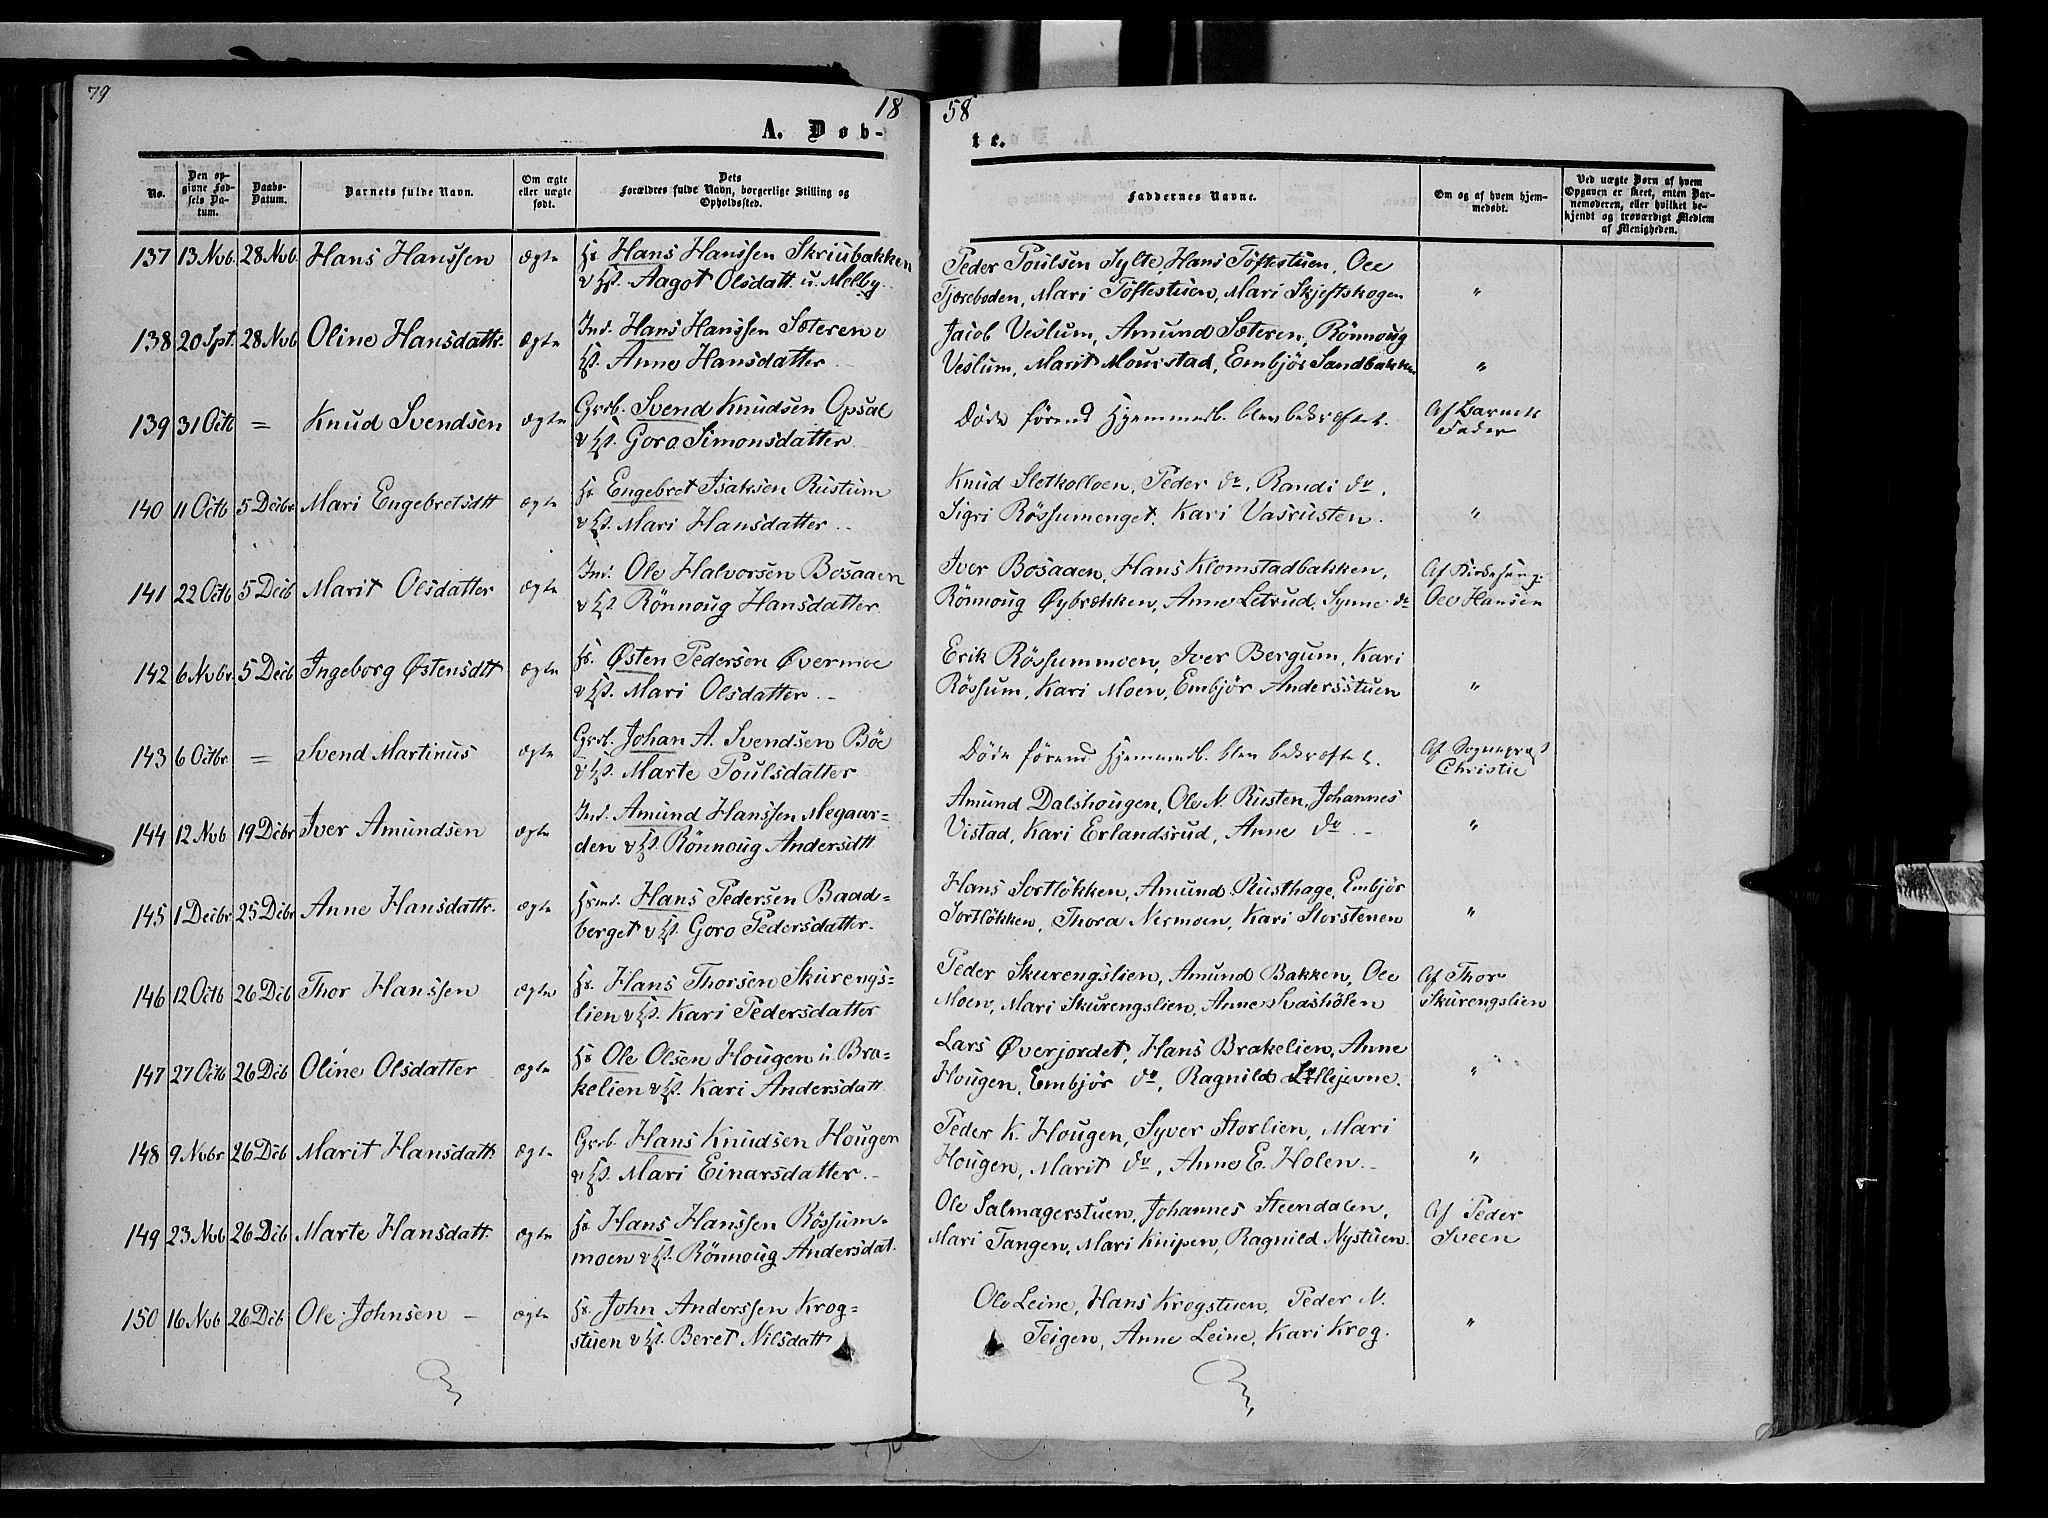 79
18
58
A. Døb-
te.
No.
Den op-
givne Fød-
sels Da-
tum.
Daabs-
Datum.
Barnets fulde Navn.
Om ægte
eller uægte
født.
Dets
Forældres fulde Navn, borgerlige Stilling og
Opholdssted.
Faddernes Navne.
Om og af hvem hjem-
medøbt.
Ved uægte Børn af hvem
Opgaven er skeet, enten Bar-
nemoderen, eller hvilket be-
kjendt og troværdigt Medlem
af Menigheden.
137 13 Nvb. 28 Nvb. Hans Hanssen ægte Hans Hanssen Skriubakken
Aagot Olsdatt. u. Melby.
Peder Poulsen Sylte, Hans Töftestuen, Ole
Tjæreboden, Mari Töftestuen, Mari Skjeftskogen "
138 20 Spt. 28 Nvb Oline Hansdattr. ægte Ind. Hans Hanssen Sæteren v
Anne Hansdatter
Jacob Veslum, Amund Sæteren, Rönnoug
Veslum, Marit Mourstad, Embjör Sandbakken "
139 31 Octb = Knud Svendsen ægte Grdb. Svend Knudsen Opsal
Goro Simonsdatter
Døde førend Hjemmedb. blev bekræftet. Af Barnets
Fader
140 11 Octb 5 Decbr Mari Engebretsdtt ægte Engebret Isaksen Rustum
Mari Hansdatter
Knud Sletkolloen, Peder do, Randi do,
Sigri Rössumenget, Kari Vasrusten. "
141 22 Octb 5 Decb Marit Olsdatter ægte Ind. Ole Halvorsen Bosaaen
Rönnoug Hansdatter
Iver Bosaaen, Hans Klomstadbakken,
Rönnoug Øybrækken, Anne Letrud, Synne do
Af Kirkesang.
Ole Hansen
142 6 Nvbr. 5 Decb Ingeborg Østensdtt ægte Østen Pedersen Øvermoe
Mari Olsdatter
Erik Rössummoen, Iver Bergum, Kari
Rössum, Kari Moen, Embjör Andersstuen "
143 6 Octbr = Svend Martinus ægte Grdb. Johan A. Svendsen Böe
Marte Poulsdatter
Døde førend Hjemmedb. blev bekræftet. Af Sognepræst
Christie
144 12 Nvb 19 Dcbr Iver Amundsen ægte Ind. Amund Hanssen Megaar-
den Rönnoug Andersdtt
Amund Dalshougen, Ole N. Rusten, Johannes
Vistad, Kari Erlandsrud, Anne do "
145 1 Decbr 25 Dcbr Anne Hansdattr. ægte Hans Pedersen Baad-
berget Goro Pedersdatter.
Hans Sortlökken, Amund Rusthage, Embjör
Sortlökken, Thora Nermoen, Kari Storstenen "
146 12 Octb 26 Dcb Thor Hanssen ægte Hans Thorsen Skurengs-
lien Kari Pedersdatter
Peder Skurengslien, Amund Bakken, Ole
Moen, Mari Skurengslien, Anne Svashölen
Af Thor
Skurengslien
147 27 Octb 26 Dcb Oline Olsdatter ægte Ole Olsen Hougen u. Bra-
kelien Kari Andersdatt
Lars Øverjordet, Hans Brakelien, Anne
Hougen, Embjör do, Ragnild Lillejevne. "
148 9 Nvbr 26 Dcb Marit Hansdatt. ægte Grdb. Hans Knudsen Hougen
Mari Einarsdatter
Peder K. Hougen, Syver Storlien, Mari
Hougen, Marit do, Anne E. Holen. "
149 23 Nvb 26 Dcb Marte Hansdatt. ægte Hans Hanssen Rössum-
moen Rönnoug Andersdat.
Ole Salmagerstuen, Johannes Steendalen,
Mari Tangen, Mari Knipen, Ragnild Nystuen.
Af Peder
Sveen
150 16 Nvb 26 Dcb Ole Johnsen ægte John Anderssen Krog-
stuen Beret Nilsdatt
Ole Leine, Hans Krogstuen, Peder N.
Teigen, Anne Leine, Kari Krog. "